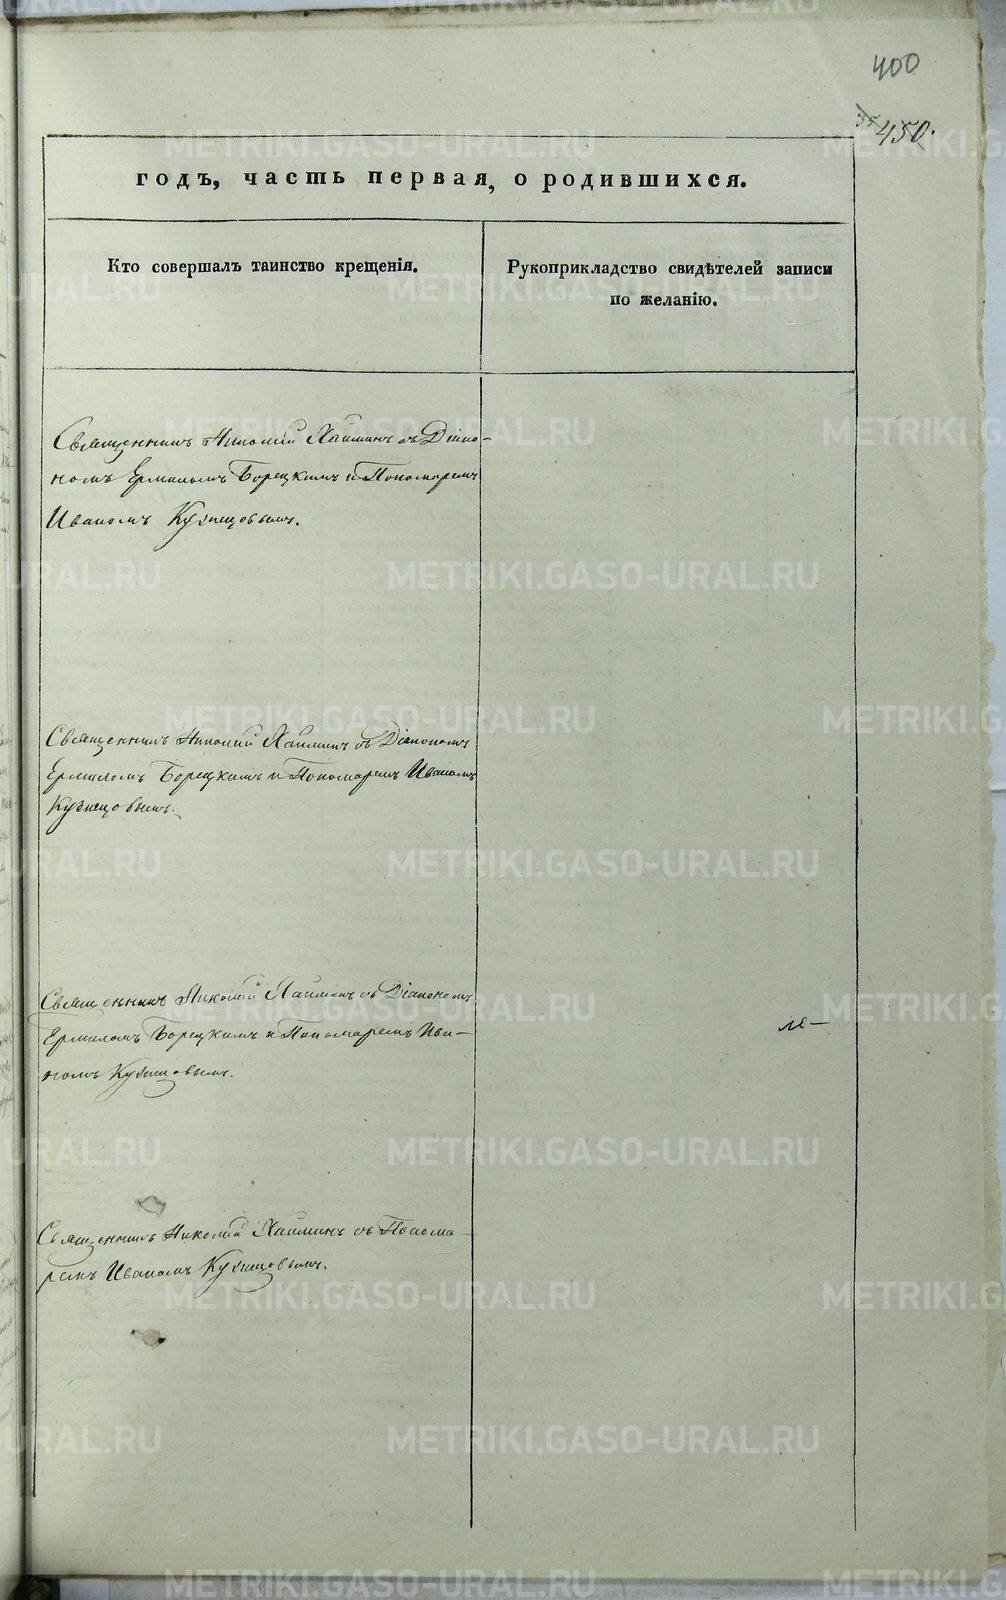 400
450.
годъ, часть первая, о родившихся.
Кто совершалъ таинство крещенія.
Рукоприкладство свидѣтелей записи
по желанію.
Священникъ Николай Хаймин съ Діако-
номъ Ермиломъ Борецкимъ и Пономаремъ
Иваномъ Кузнецовымъ.
Священникъ Николай Хаймин съ Діакономъ
Ермиломъ Борецкимъ и Пономаремъ Иваномъ
Кузнецовымъ.
Священникъ Николай Хаймин съ Діакономъ
Ермиломъ Борецкимъ и Пономаремъ Ива-
номъ Кузнецовымъ.
Священникъ Николай Хаймин съ Понома-
ремъ Иваномъ Кузнецовымъ.
METRIKI.GASO-URAL.RU